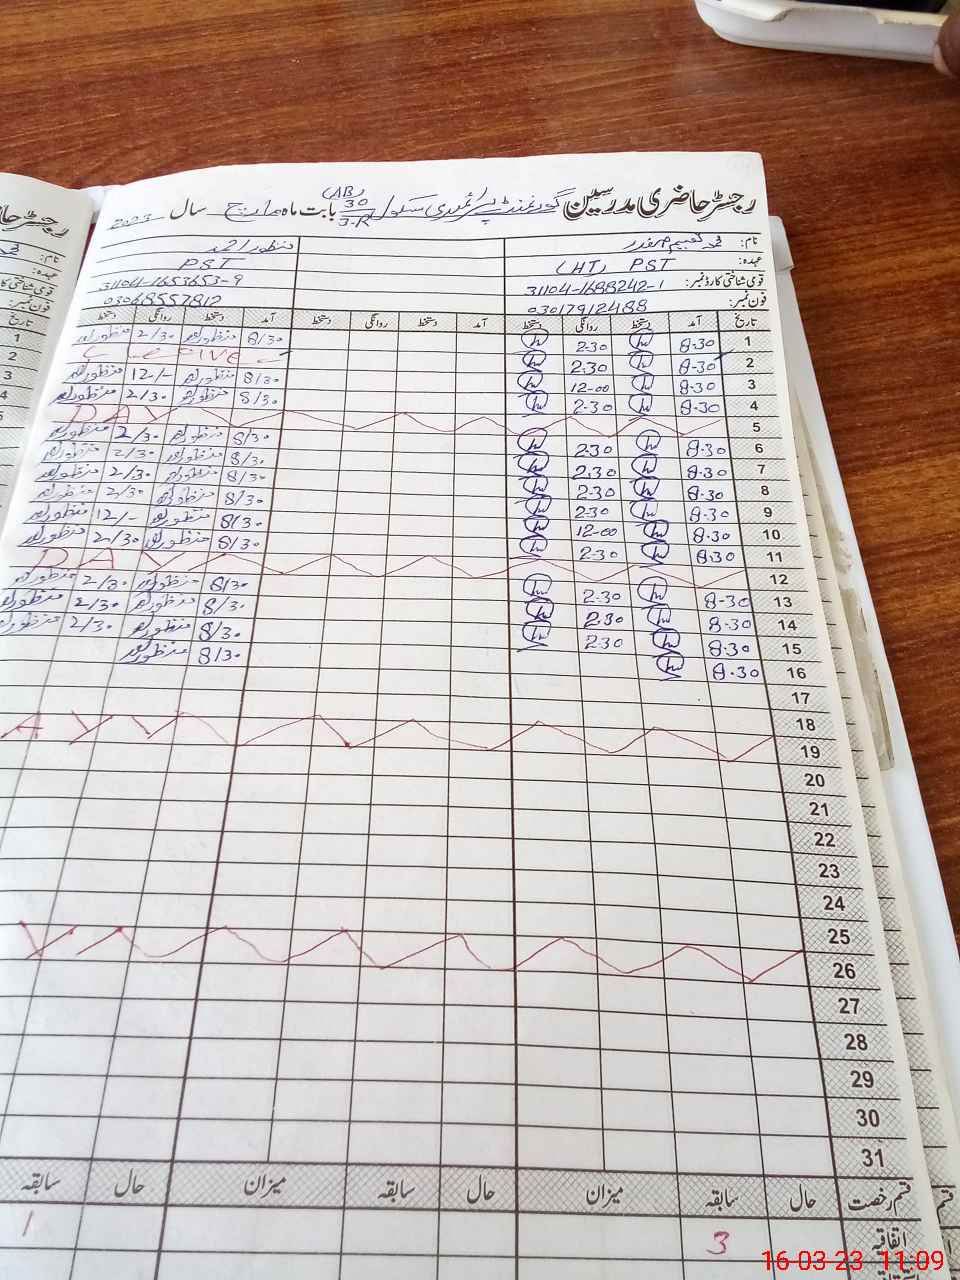 رجسٹر حاضری مدرسین گورنمنٹ پرائمری سکول 30/3-R (AB) بابت ماہ مارچ سال 2023
نام: محمد نعیم صفدر منظور احمد
عہدہ: PST (HT) PST
قومی شناختی کارڈ نمبر: 31104-1688242-1 31104-1653653-9
فون نمبر: 03017912488 03068557812
تاریخ آمد دستخط روانگی دستخط آمد دستخط روانگی دستخط آمد دستخط روانگی دستخط
1 8.30 2.30 8/30 منظور احمد 2/30 منظور احمد
2 8.30 2.30 LEAVE
3 8.30 12-00 8/30 منظور احمد 12/- منظور احمد
4 8.30 2.30 8/30 منظور احمد 2/30 منظور احمد
5 DAY
6 8.30 2.30 8/30 منظور احمد 2/30 منظور احمد
7 8.30 2.30 8/30 منظور احمد 2/30 منظور احمد
8 8.30 2.30 8/30 منظور احمد 2/30 منظور احمد
9 8.30 2.30 8/30 منظور احمد 2/30 منظور احمد
10 8.30 12-00 8/30 منظور احمد 12/- منظور احمد
11 8.30 2.30 8/30 منظور احمد 2/30 منظور احمد
12 DAY
13 8-30 2.30 8/30 منظور احمد 2/30 منظور احمد
14 8.30 2.30 8/30 منظور احمد 2/30 منظور احمد
15 8.30 2.30 8/30 منظور احمد 2/30 منظور احمد
16 8.30 8/30 منظور احمد
17
18
19 AY
20
21
22
23
24
25
26 Y
27
28
29
30
31
قسم رخصت حال سابقہ میزان حال سابقہ میزان حال سابقہ
اتفاقیہ 3 1
16-03-23 11:09